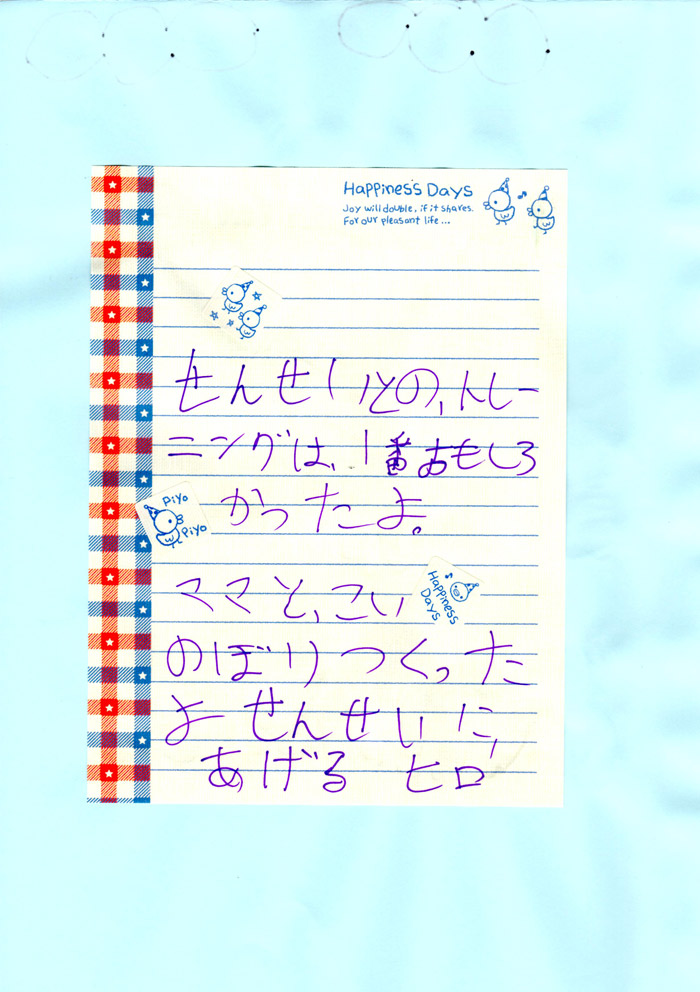 Happiness Days
Joy will double, if it shares.
For our pleasant life...
せんせいとの、トレー
ニングは、1番おもしろ
Piyo
Piyo
かったよ。
ママと、こい
Happiness
Days
のぼりつくった
よ せんせいに、
あげる ヒロ